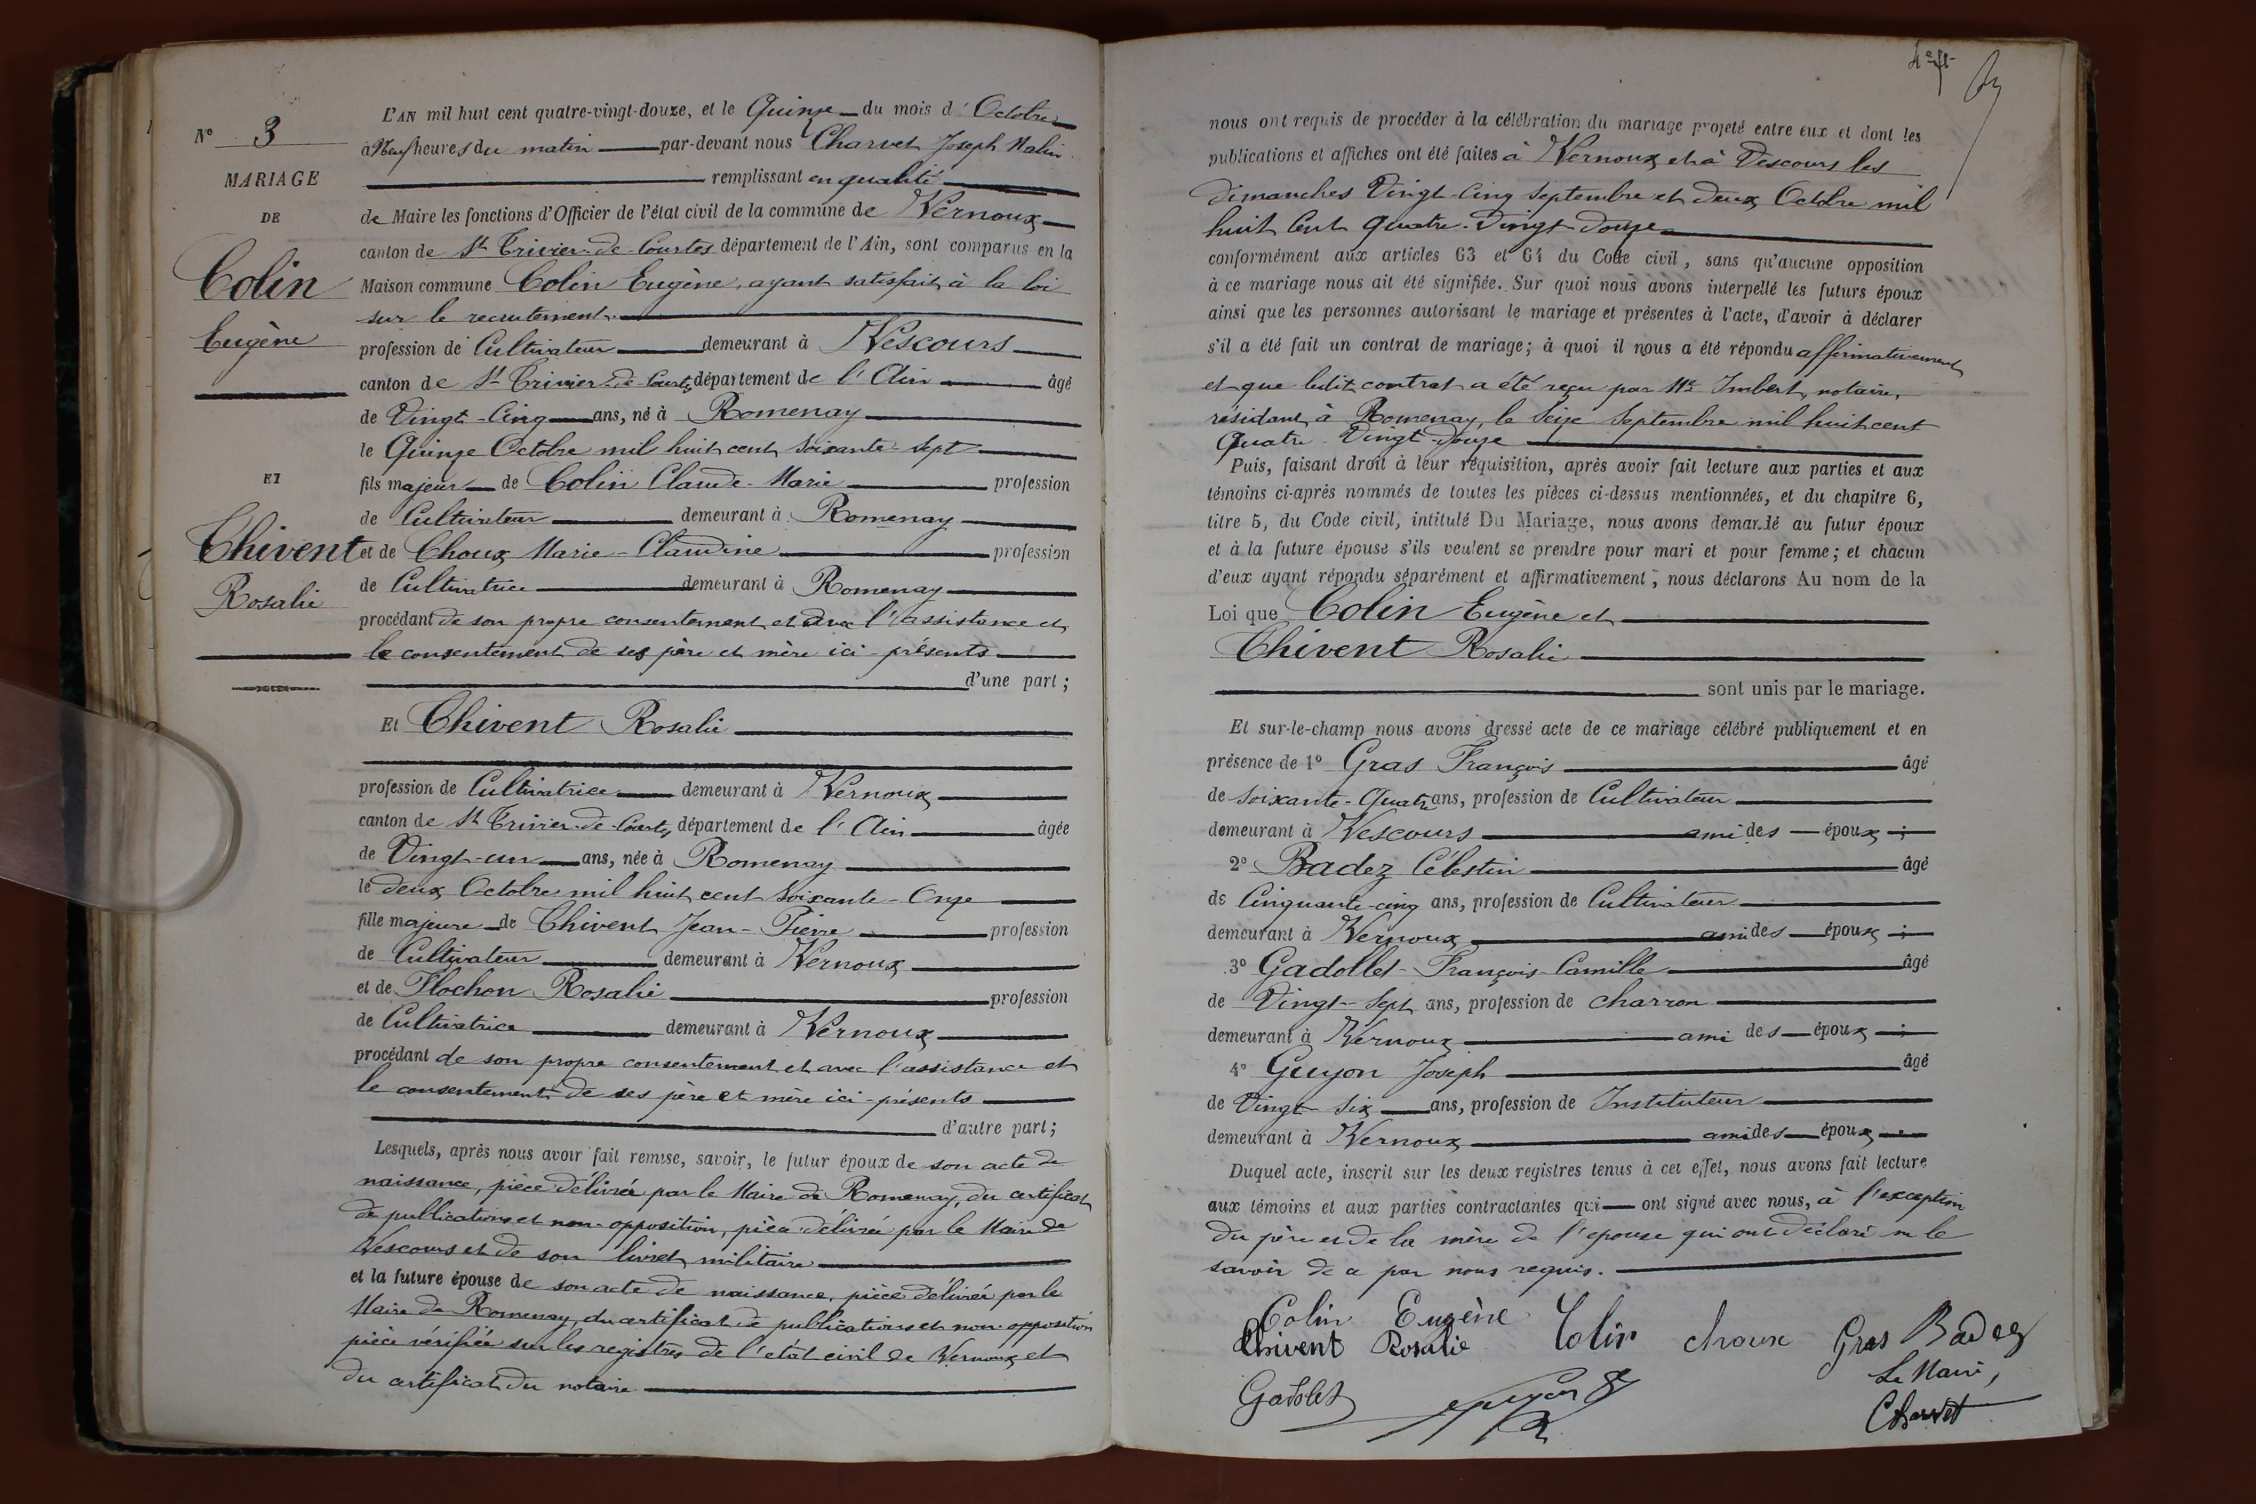 L'AN mil huit cent quatre-vingt-douze, et le Quinze du mois d'Octobre
N° 3
à Neuf heures du matin par-devant nous Charvet Joseph Malin
MARIAGE
remplissant en qualité
DE
de Maire les fonctions d'Officier de l'état civil de la commune de Vernoux
canton de St Trivier-de-Courtes département de l'Ain, sont comparus en la
Colin
Maison commune Colin Eugène, ayant satisfait à la loi
sur le recrutement
Eugène
profession de Cultivateur demeurant à Vescours
canton de St Trivier-de-Courtes département de l'Ain âgé
de Vingt-Cinq ans, né à Romenay
le Quinze Octobre mil huit cent soixante-sept
ET
fils majeur de Colin Claude-Marie profession
de Cultivateur demeurant à Romenay
Chivent
et de Choux Marie-Claudine profession
de Cultivatrice demeurant à Romenay
Rosalie
procédant de son propre consentement et avec l'assistance et
le consentement de ses père et mère ici-présents
d'une part ;
Et Chivent Rosalie
profession de Cultivatrice demeurant à Vernoux
canton de St Trivier-de-Courtes département de l'Ain âgée
de Vingt-un ans, née à Romenay
le deux Octobre mil huit cent soixante-Onze
fille majeure de Chivent Jean-Pierre profession
de Cultivateur demeurant à Vernoux
et de Flochon Rosalie profession
de Cultivatrice demeurant à Vernoux
procédant de son propre consentement et avec l'assistance et
le consentement de ses père et mère ici-présents
d'autre part ;
Lesquels, après nous avoir fait remise, savoir, le futur époux de son acte de
naissance, pièce délivrée par le Maire de Romenay, du certificat
de publications et non-opposition, pièce délivrée par le Maire de
Vescours et de son livret militaire
et la future épouse de son acte de naissance, pièce délivrée par le
Maire de Romenay, du certificat de publications et non-opposition
pièce vérifiée sur les registres de l'état civil de Vernoux et
du certificat du notaire
nous ont requis de procéder à la célébration du mariage projeté entre eux et dont les
publications et affiches ont été faites à Vernoux et à Vescours les
dimanches Vingt-Cinq Septembre et deux Octobre mil
huit Cent Quatre-Vingt-Douze
conformément aux articles 63 et 64 du Code civil, sans qu'aucune opposition
à ce mariage nous ait été signifiée. Sur quoi nous avons interpellé les futurs époux
ainsi que les personnes autorisant le mariage et présentes à l'acte, d'avoir à déclarer
s'il a été fait un contrat de mariage ; à quoi il nous a été répondu affirmativement
et que ledit contrat a été reçu par Me Imbert, notaire,
résidant à Romenay, le Seize Septembre mil huit cent
Quatre-Vingt-Douze
Puis, faisant droit à leur réquisition, après avoir fait lecture aux parties et aux
témoins ci-après nommés de toutes les pièces ci-dessus mentionnées, et du chapitre 6,
titre 5, du Code civil, intitulé Du Mariage, nous avons demandé au futur époux
et à la future épouse s'ils veulent se prendre pour mari et pour femme ; et chacun
d'eux ayant répondu séparément et affirmativement, nous déclarons Au nom de la
Loi que Colin Eugène et
Chivent Rosalie
sont unis par le mariage.
Et sur-le-champ nous avons dressé acte de ce mariage célébré publiquement et en
présence de 1° Gras François âgé
de soixante-Quatre ans, profession de Cultivateur
demeurant à Vescours ami des époux ;
2° Badez Célestin âgé
de Cinquante-cinq ans, profession de Cultivateur
demeurant à Vernoux ami des époux ;
3° Gadollet François-Camille âgé
de Vingt-Sept ans, profession de charron
demeurant à Vernoux ami des époux ;
4° Guyon Joseph âgé
de Vingt-Six ans, profession de Instituteur
demeurant à Vernoux ami des époux
Duquel acte, inscrit sur les deux registres tenus à cet effet, nous avons fait lecture
aux témoins et aux parties contractantes qui ont signé avec nous, à l'exception
du père et de la mère de l'épouse qui ont déclaré ne le
savoir de ce par nous requis.
Colin Eugène
Chivent Rosalie Colin choux Gras Badez
Le Maire,
Gadolet Guyon J
Charvet